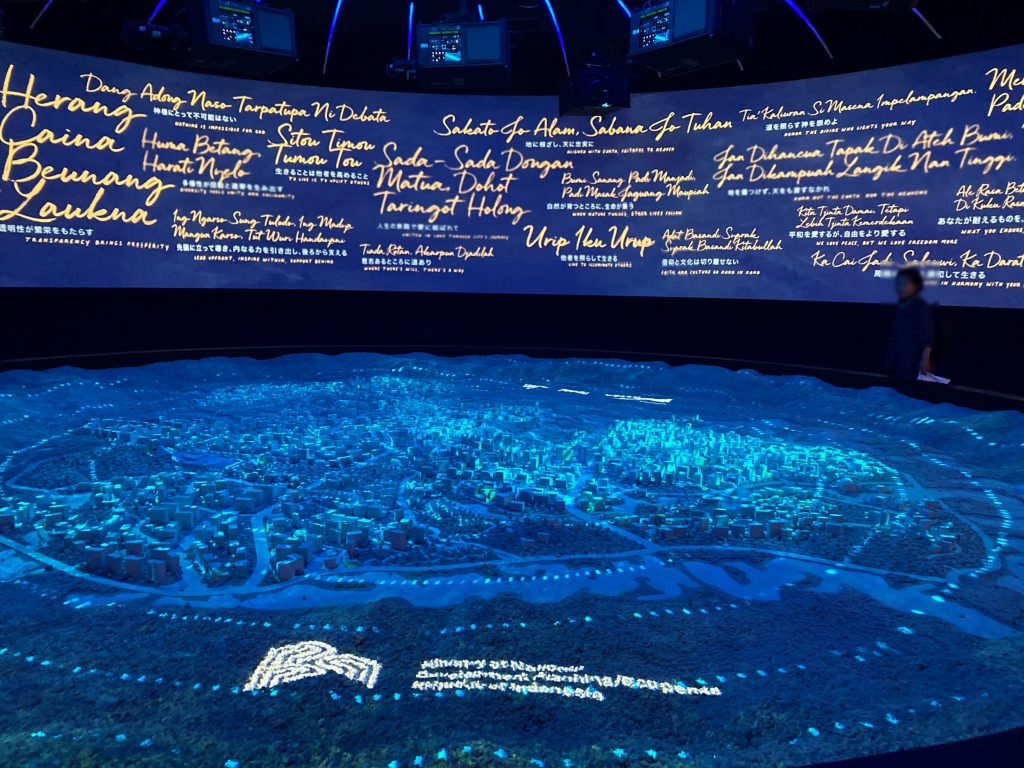 Herang
Caina
Beunang
Laukna
透明性が繁栄をもたらす
TRANSPARENCY BRINGS PROSPERITY
Dang Adong Naso Tarpatupa Ni Debata
神様にとって不可能はない
NOTHING IS IMPOSSIBLE FOR GOD
Huma Betang
Harati Nyelo
多様性が団結と連帯を生み出す
Sitou Timou
Tumou Tou
生きることは他者を高めること
TO LIVE IS TO UPLIFT OTHERS
Ing Ngarso Sung Tulodo, Ing Madya
Mangun Karso, Tut Wuri Handayani
先頭に立って導き、内なる力を引き出し、後ろから支える
LEAD UPFRONT, INSPIRE WITHIN, SUPPORT BEHIND
Sada-Sada Dongan
Matua, Dohot
Taringot Holong
人生の旅路で愛に結ばれて
UNITED IN LOVE THROUGH LIFE'S JOURNEY
Tinda Rotan, Akarpun Djadilah
意志あるところに道あり
WHERE THERE'S WILL, THERE'S A WAY
Sakato Jo Alam, Sabana Jo Tuhan
地に根ざし、天に忠実に
ALIGNED WITH EARTH, FAITHFUL TO HEAVEN
Bumi Sanang Padi Manjadi,
Padi Masak Jaguang Maupiah
自然が育つところに、生命が集う
WHEN NATURE THRIVES, OTHER LIVES FOLLOW
Urip Iku Urup
他者を照らして生きる
LIVE TO ILLUMINATE OTHERS
Adat Basandi Syarak,
Syarak Basandi Kitabullah
信仰と文化は切り離せない
FAITH AND CULTURE GO HAND IN HAND
Tia' Kaluran, Si Masena Impelampangan.
道を照らす神を崇めよ
HONOR THE DIVINE WHO LIGHTS YOUR WAY
Jan Dihancua Tapak Di Ateh Bumi,
Jan Dikampuah Langik Nan Tinggi.
地を傷つけず、天をも乱すなかれ
HARM NOT THE EARTH NOR THE HEAVENS
Kita Tjinta Damai, Tetapi
Lebih Tjinta Kemerdekaan
平和を愛するが、自由をより愛する
WE LOVE PEACE, BUT WE LOVE FREEDOM MORE
Ka Cai Jadi Saleuwi, Ka Darat
して生きる
IN HARMONY WITH YOUR
Ale Rasa
Di Kuku Rasa
あなたが耐えるものを、
WHAT YOU ENDURE,
Ministry of National
Development Planning/Bappenas
Republic of Indonesia